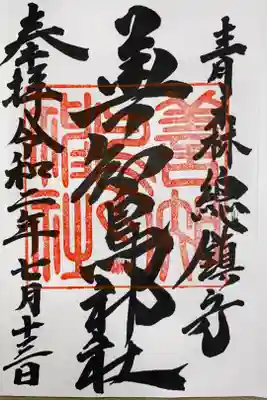 青森総鎮守
善知鳥神社
奉拝 令和二年七月十三日